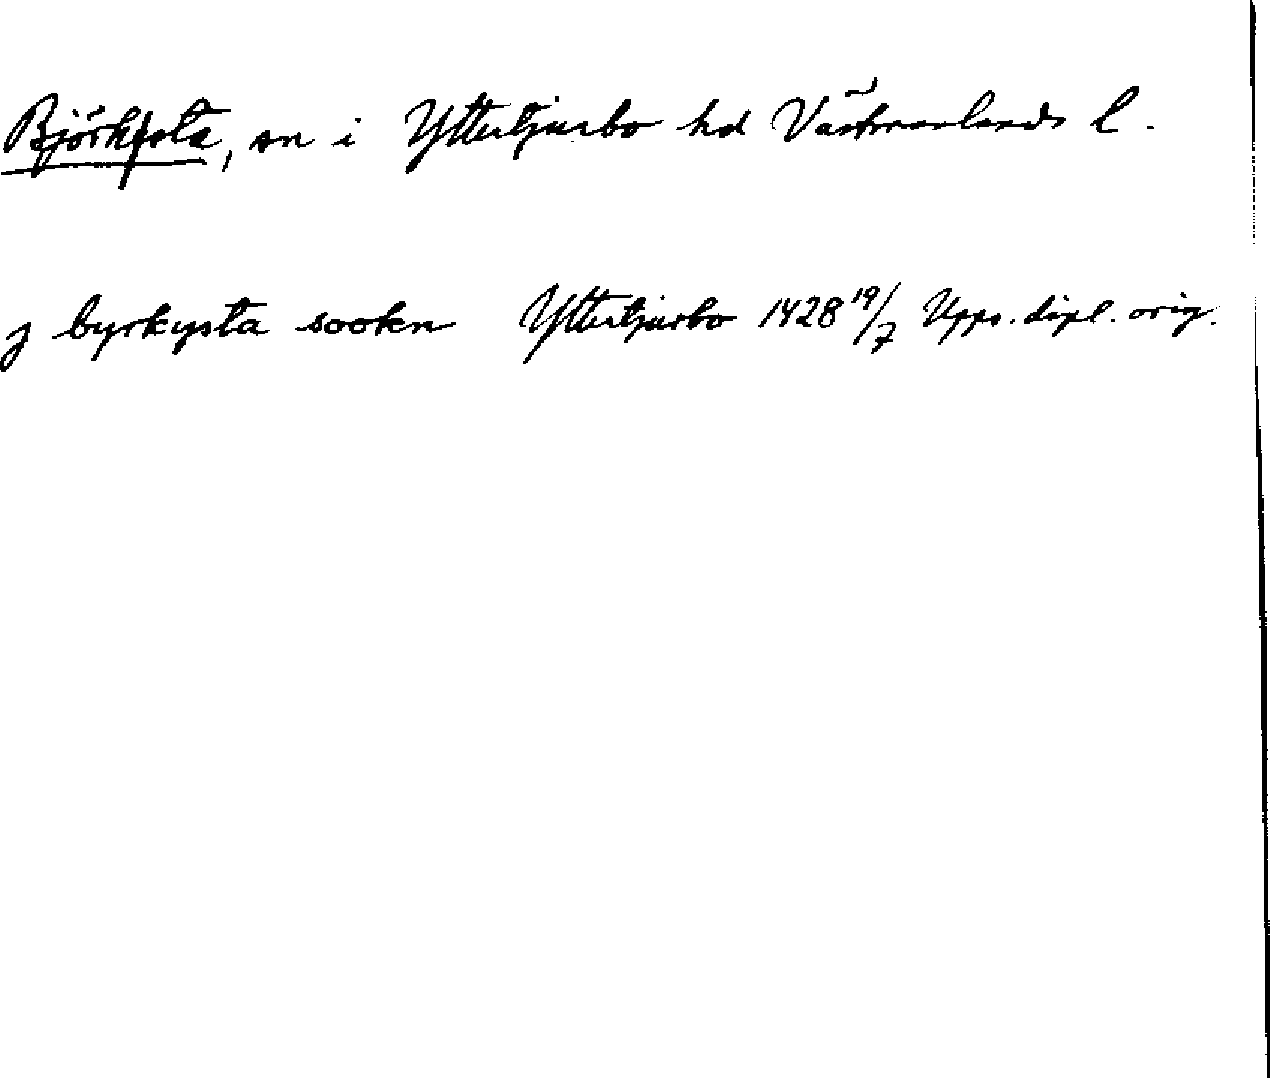 Björksta, sn i Yttertjurbo hd Västmanlands l.
j byrkysta sookn Yttertjurbo 1428 19/7 Upps. dipl. orig.